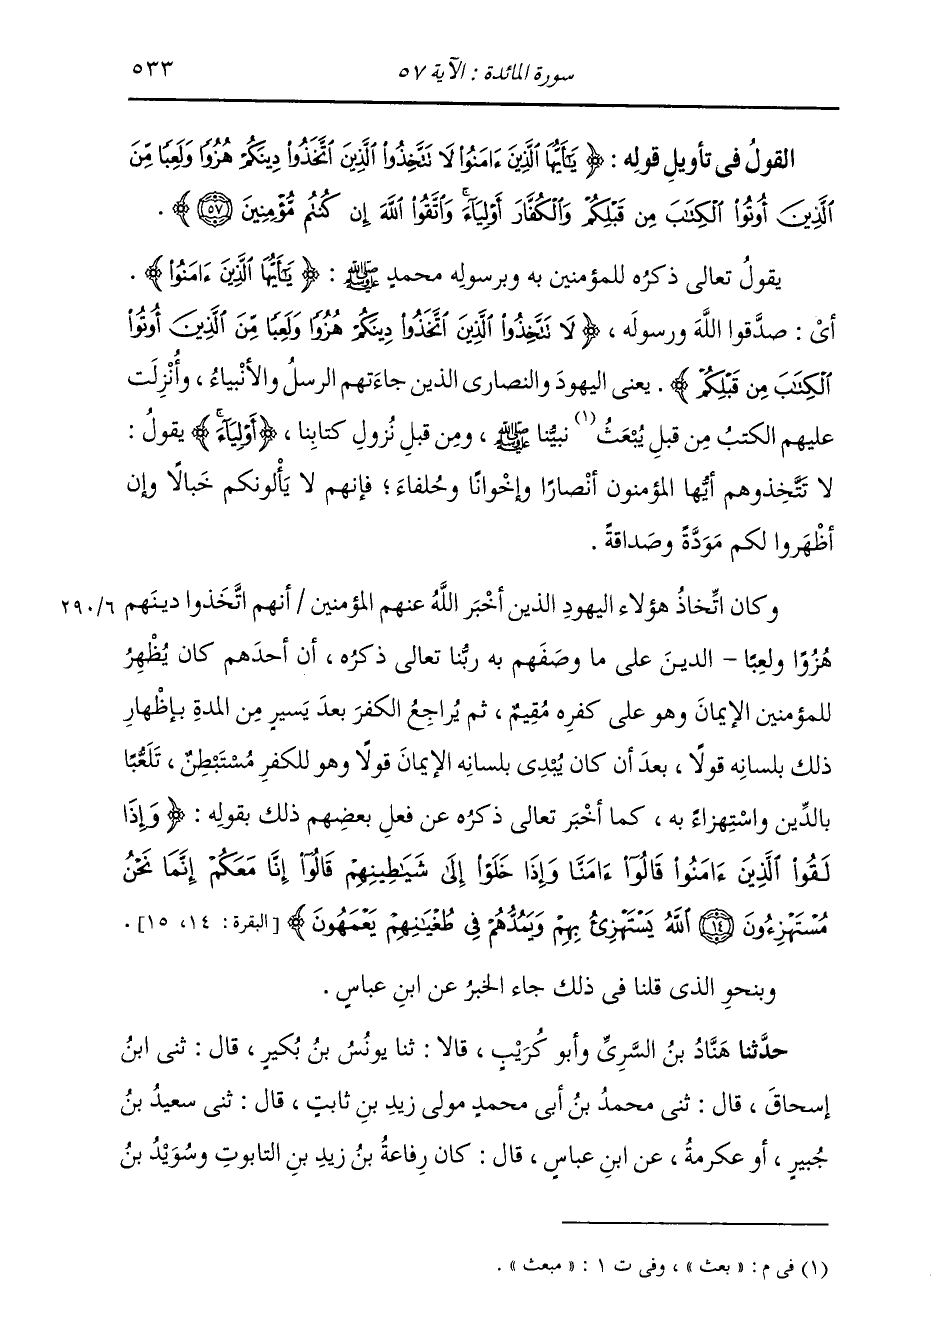 سورة المائدة : الآية ٥٧ ٥٣٣
القولُ فى تأويلِ قولِه : ﴿ يَٰٓأَيُّهَا ٱلَّذِينَ ءَامَنُوا۟ لَا تَتَّخِذُوا۟ ٱلَّذِينَ ٱتَّخَذُوا۟ دِينَكُمْ هُزُوًا وَلَعِبًا مِّنَ
ٱلَّذِينَ أُوتُوا۟ ٱلْكِتَٰبَ مِن قَبْلِكُمْ وَٱلْكُفَّارَ أَوْلِيَآءَ ۚ وَٱتَّقُوا۟ ٱللَّهَ إِن كُنتُم مُّؤْمِنِينَ ٥٧ ﴾ .
يقولُ تعالى ذكرُه للمؤمنين به وبرسولِه محمدٍ ﷺ : ﴿ يَٰٓأَيُّهَا ٱلَّذِينَ ءَامَنُوا۟ ﴾ .
أىْ : صدَّقوا اللَّهَ ورسولَه ، ﴿ لَا تَتَّخِذُوا۟ ٱلَّذِينَ ٱتَّخَذُوا۟ دِينَكُمْ هُزُوًا وَلَعِبًا مِّنَ ٱلَّذِينَ أُوتُوا۟
ٱلْكِتَٰبَ مِن قَبْلِكُمْ ﴾ . يعنى اليهودَ والنصارى الذين جاءَتهم الرسلُ والأنْبياءُ ، وأُنْزِلَت
عليهم الكتبُ مِن قبلِ يُبْعَثُ(١) نبيُّنا ﷺ ، ومِن قبلِ نُزولِ كتابِنا ، ﴿ أَوْلِيَآءَ ۚ ﴾ يقولُ :
لا تَتَّخِذوهم أيُّها المؤمنون أنْصارًا وإخْوانًا وحُلفاءَ ؛ فإنهم لا يَأْلونكم خَبالًا وإن
أظْهَروا لكم مَوَدَّةً وصَداقةً .
وكان اتِّخاذُ هؤلاء اليهودِ الذين أخْبَر اللَّهُ عنهم المؤمنين / أنهم اتَّخَذوا دينَهم ٢٩٠/٦
هُزُوًا ولعِبًا – الدينَ على ما وصَفَهم به ربُّنا تعالى ذكرُه ، أن أحدَهم كان يُظْهِرُ
للمؤمنين الإيمانَ وهو على كفرِه مُقِيمٌ ، ثم يُراجِعُ الكفرَ بعدَ يَسيرٍ مِن المدةِ بإظْهارِ
ذلك بلسانِه قولًا ، بعدَ أن كان يُبْدِى بلسانِه الإيمانَ قولًا وهو للكفرِ مُسْتَبْطِنٌ ، تَلَعُّبًا
بالدِّينِ واسْتِهزاءً به ، كما أخْبَر تعالى ذكرُه عن فعلِ بعضِهم ذلك بقولِه : ﴿ وَإِذَا
لَقُوا۟ ٱلَّذِينَ ءَامَنُوا۟ قَالُوٓا۟ ءَامَنَّا وَإِذَا خَلَوْا۟ إِلَىٰ شَيَٰطِينِهِمْ قَالُوٓا۟ إِنَّا مَعَكُمْ إِنَّمَا نَحْنُ
مُسْتَهْزِءُونَ ١٤ ٱللَّهُ يَسْتَهْزِئُ بِهِمْ وَيَمُدُّهُمْ فِى طُغْيَٰنِهِمْ يَعْمَهُونَ ﴾ [البقرة: ١٤، ١٥] .
وبنحوِ الذى قلنا فى ذلك جاء الخبرُ عن ابنِ عباسٍ .
حدَّثنا هَنَّادُ بنُ السَّرِىِّ وأبو كُرَيْبٍ ، قالا : ثنا يونُسُ بنُ بُكيرٍ ، قال : ثنى ابنُ
إسحاقَ ، قال : ثنى محمدُ بنُ أبى محمدٍ مولى زيدِ بنِ ثابتٍ ، قال : ثنى سعيدُ بنُ
جُبيرٍ ، أو عكرمةُ ، عن ابنِ عباسٍ ، قال : كان رِفاعةُ بنُ زيدِ بنِ التابوتِ وسُوَيْدُ بنُ
(١) فى م : « بعث » ، وفى ت ١ : « مبعث » .